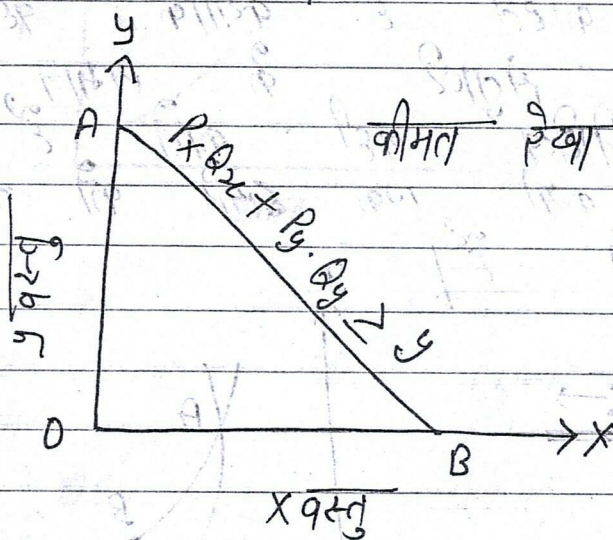 y
A
कीमत रेखा
Px Qx + Py. Qy ≤ y
y वस्तु
O
B
X
X वस्तु